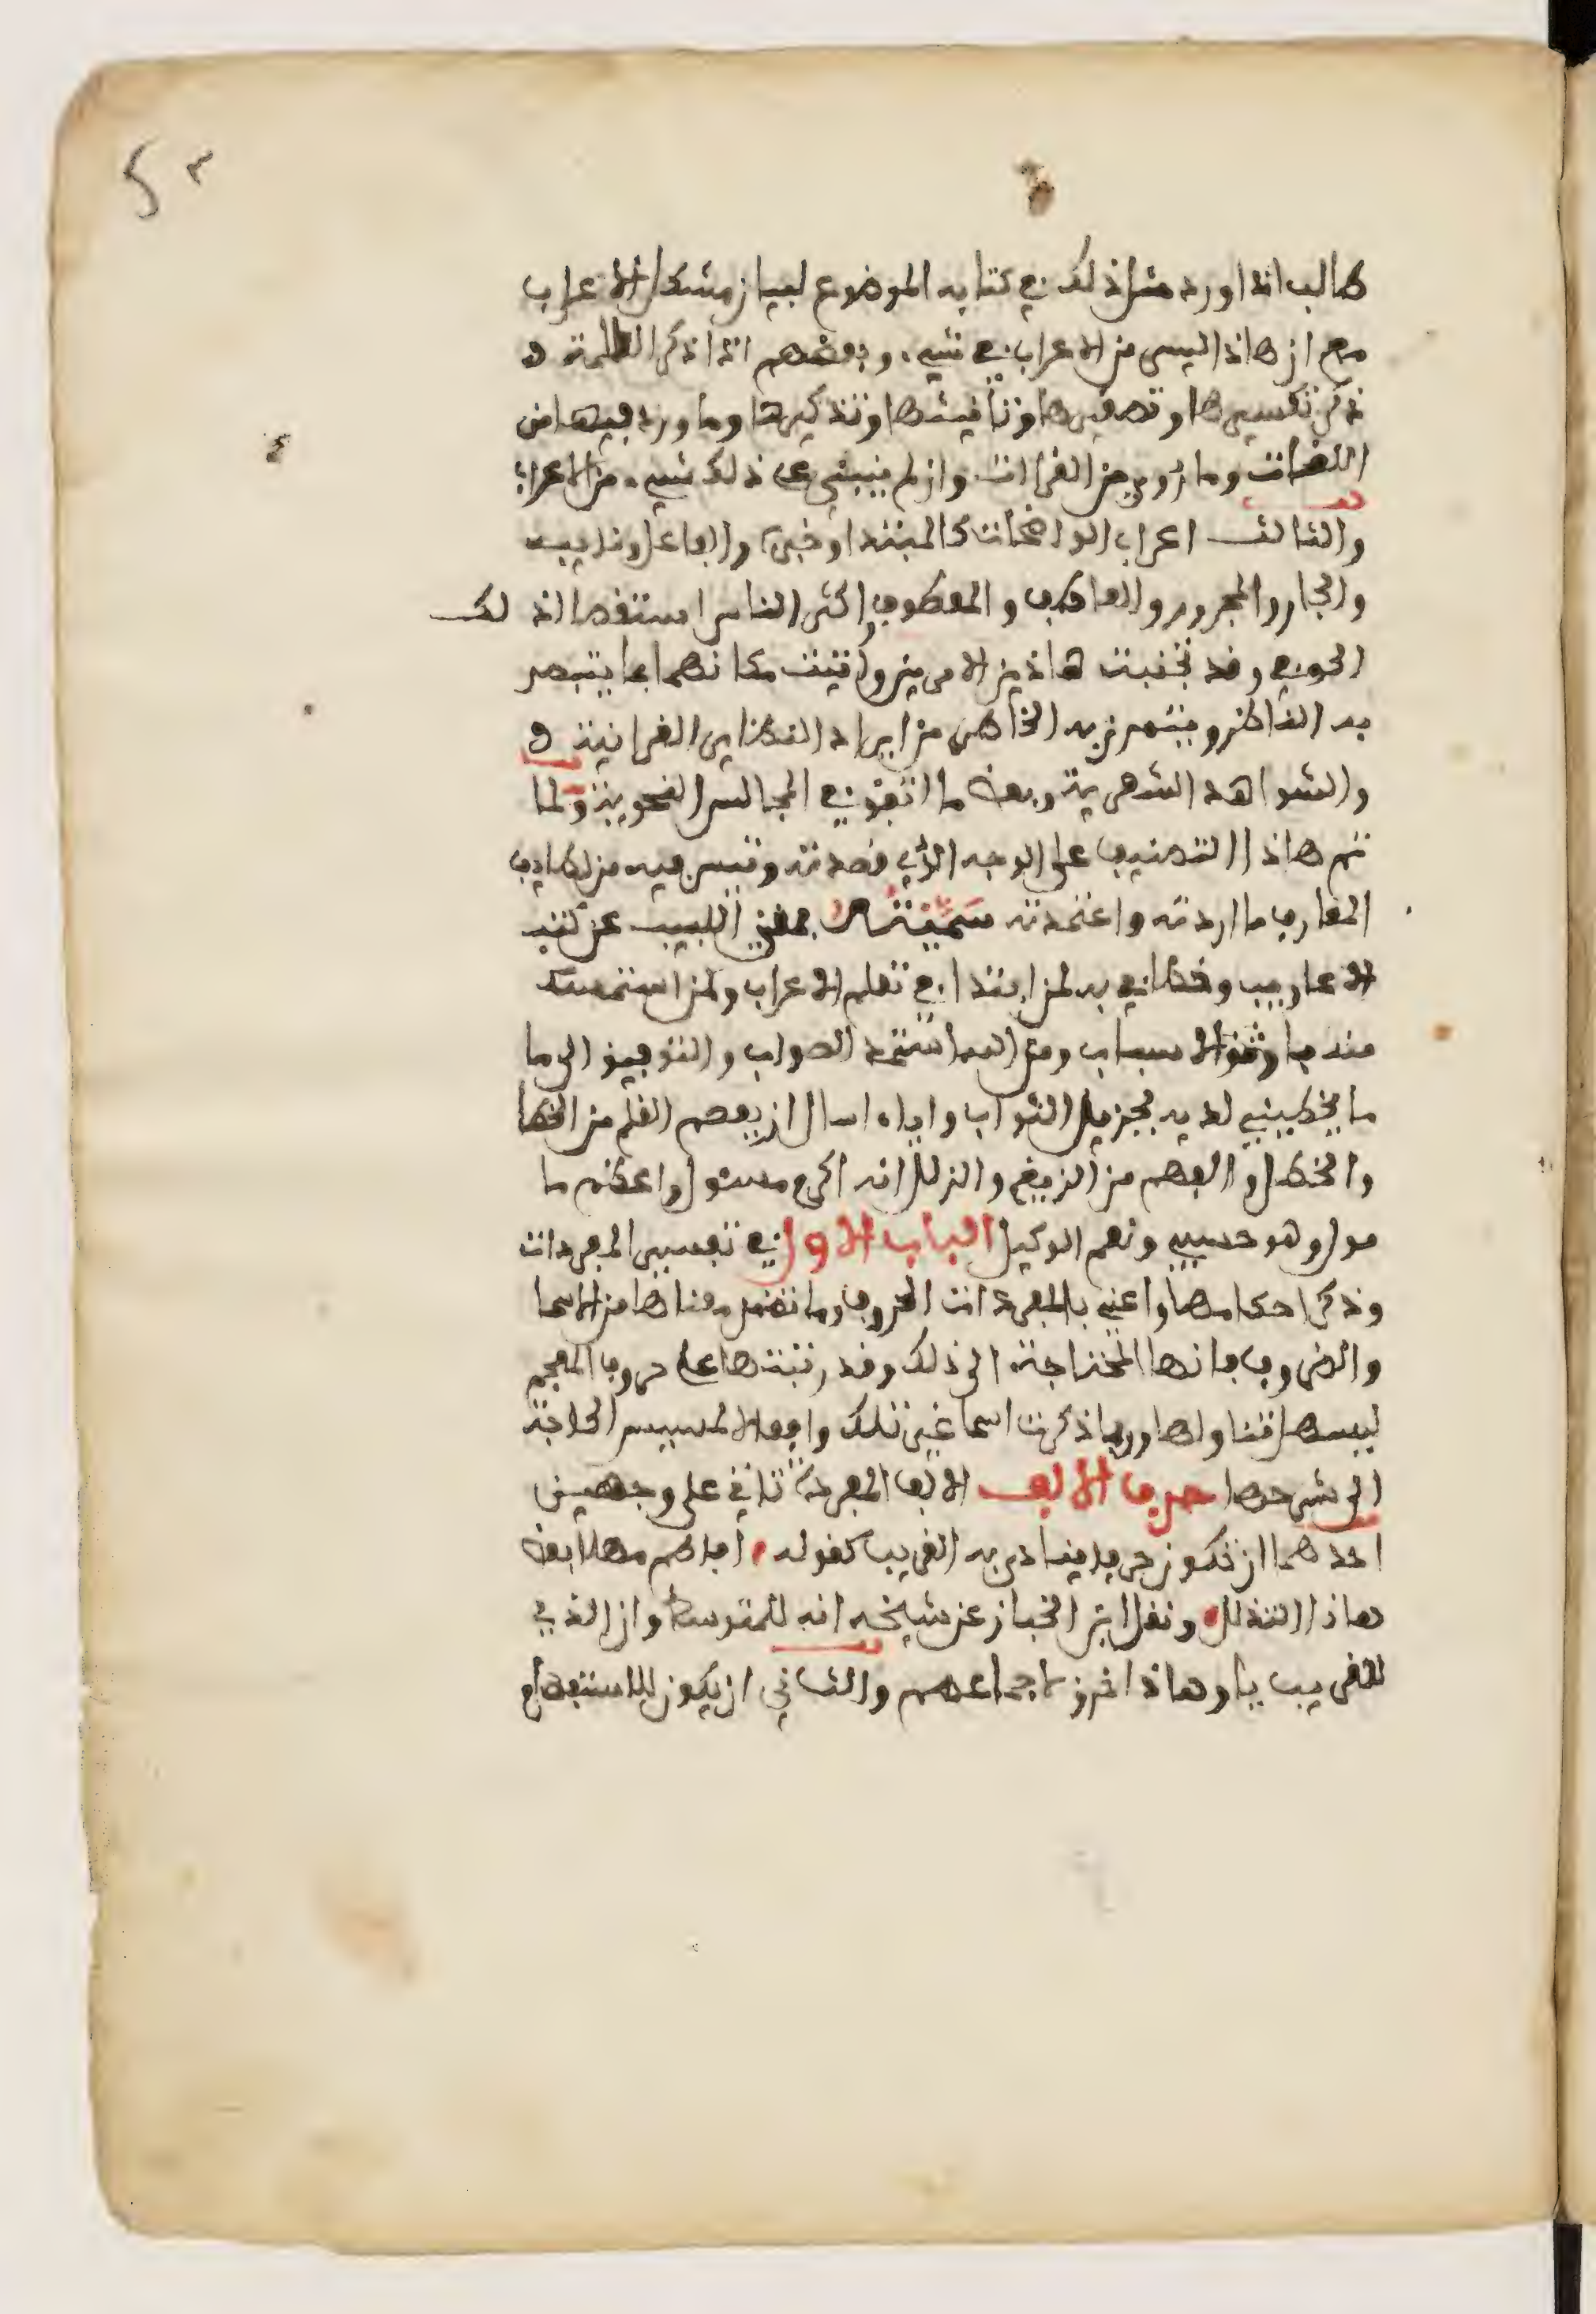 طالب اذا اورد مثل ذلك في كتابه الموضوع لبيان مشكل الاعراب
مع ان هاذا ليس من الاعراب في شيء، وبعضهم اذا ذكر الكلمة ذ
ذكر تكسيرها وتصغيرها وتأنيثها وتذكيرها وما ورد فيها من
اللغات وما رُوي من القراات وان لم ينبني على ذلك شيء، من الاعراب
والثالث اعراب الواضحات كالمبتدا وخبره والفاعل ونايبه
والجار والمجرور والعاطف والمعطوف واكثر الناس استقصا لذ لك
الحوفي وقد تجنبت هاذين الامرين واتيت مكانهما بما يتبصر
به الناظر ويتمرن به الخاطر من ايراد النظاير القرانية و
والشواهد الشعرية وبعض ما اتفق في المجالس النحوية ولما
تم هاذا التصنيف على الوجه الذي قصدته وتيسر فيه من لطايف
المعارف ما اردته واعتمدته سَمَّيْتُهُ بمغني اللبيب عن كتب
الاعاريب وخطابي به لمن ابتدا في تعلم الاعراب ولمن استمسك
منه باوثق الاسباب ومن الله استمد الصواب والتوفيق الى ما
ما يحظيني لديه بجزيل الثواب واياه اسال ان يعصم القلم من الخطا
والخطل والفهم من الزيغ والزلل انه اكرم مسئول واعظم ما
مول وهو حسبي ونعم الوكيل الباب الاول في تفسير المفردات
وذكر احكامها واعني بالمفردات الحروف وما تضمن معناها من الاسما
والضروف فانها المحتاجة الى ذلك وقد رتبتها على حروف المعجم
ليسهل تناولها وربما ذكرت اسما غير تلك وافعالا لمسيس الحاجة
الى شرحها حرف الالف الالف المفردة تاتي على وجهين
احدهما ان تكون حرفا ينادى به القريب كقوله افاطم مهلا بعض
هاذا التدلل ونقل ابن الخباز عن شيخه انه للمتوسط وان الذي
للقريب يا وهاذا خرق لاجماعهم والثاني ان يكون للاستفهام